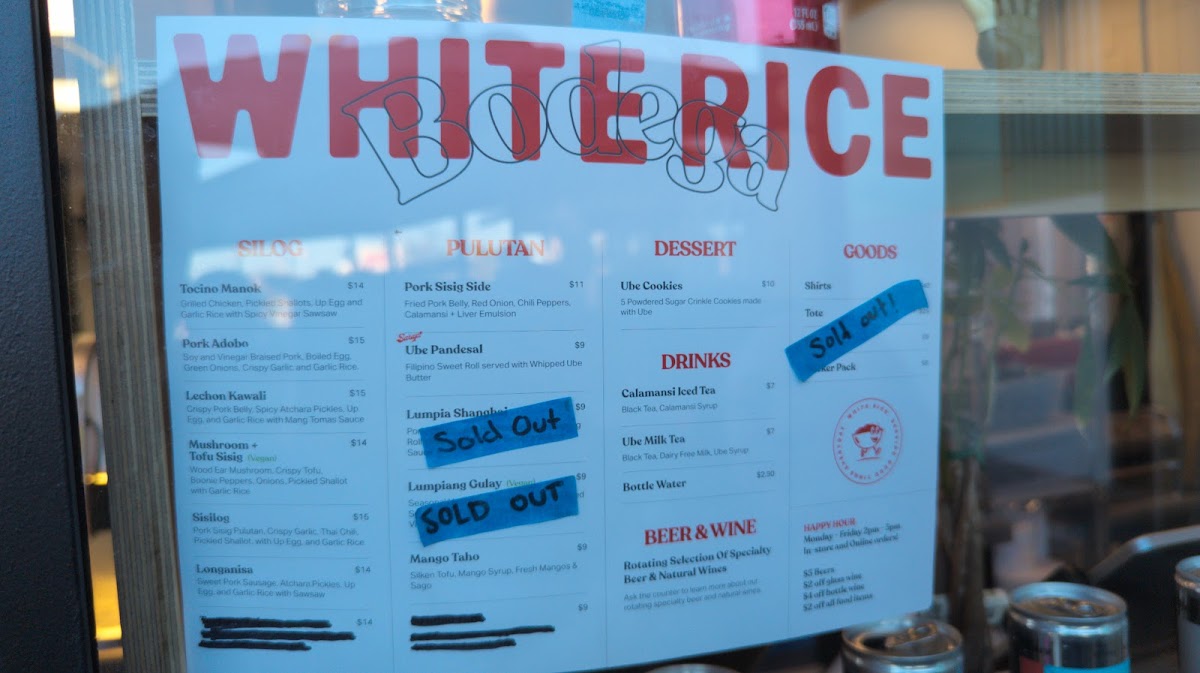 12 FL OZ
(355 mL)
WHITE RICE
Bodega
SILOG
Tocino Manok $14
Grilled Chicken, Pickled Shallots, Up Egg and
Garlic Rice with Spicy Vinegar Sawsaw
Pork Adobo $15
Soy and Vinegar Braised Pork, Boiled Egg,
Green Onions, Crispy Garlic and Garlic Rice.
Lechon Kawali $15
Crispy Pork Belly, Spicy Atchara Pickles, Up
Egg, and Garlic Rice with Mang Tomas Sauce
Mushroom +
Tofu Sisig (Vegan) $14
Wood Ear Mushroom, Crispy Tofu,
Boonie Peppers, Onions, Pickled Shallot
with Garlic Rice
Sisilog $16
Pork Sisig Pulutan, Crispy Garlic, Thai Chili,
Pickled Shallot, with Up Egg, and Garlic Rice
Longanisa $14
Sweet Pork Sausage, Atchara Pickles, Up
Egg, and Garlic Rice with Sawsaw
$14
PULUTAN
Pork Sisig Side $11
Fried Pork Belly, Red Onion, Chili Peppers,
Calamansi + Liver Emulsion
Ube Pandesal $9
Filipino Sweet Roll served with Whipped Ube
Butter
Lumpia Shanghai $9
Sold Out
Lumpiang Gulay (Vegan) $9
SOLD OUT
Mango Taho $9
Silken Tofu, Mango Syrup, Fresh Mangos &
Sago
$9
DESSERT
Ube Cookies $10
5 Powdered Sugar Crinkle Cookies made
with Ube
DRINKS
Calamansi Iced Tea $7
Black Tea, Calamansi Syrup
Ube Milk Tea $7
Black Tea, Dairy Free Milk, Ube Syrup
Bottle Water $2.90
BEER & WINE
Rotating Selection Of Specialty
Beer & Natural Wines
Ask the counter to learn more about our
rotating specialty beer and natural wines.
GOODS
Shirts
Tote
Sold out!
Pack
HAPPY HOUR
Monday - Friday 2pm - 5pm
In-store and Online orders!
$5 Beers
$2 off glass wine
$4 off bottle wine
$2 off all food items